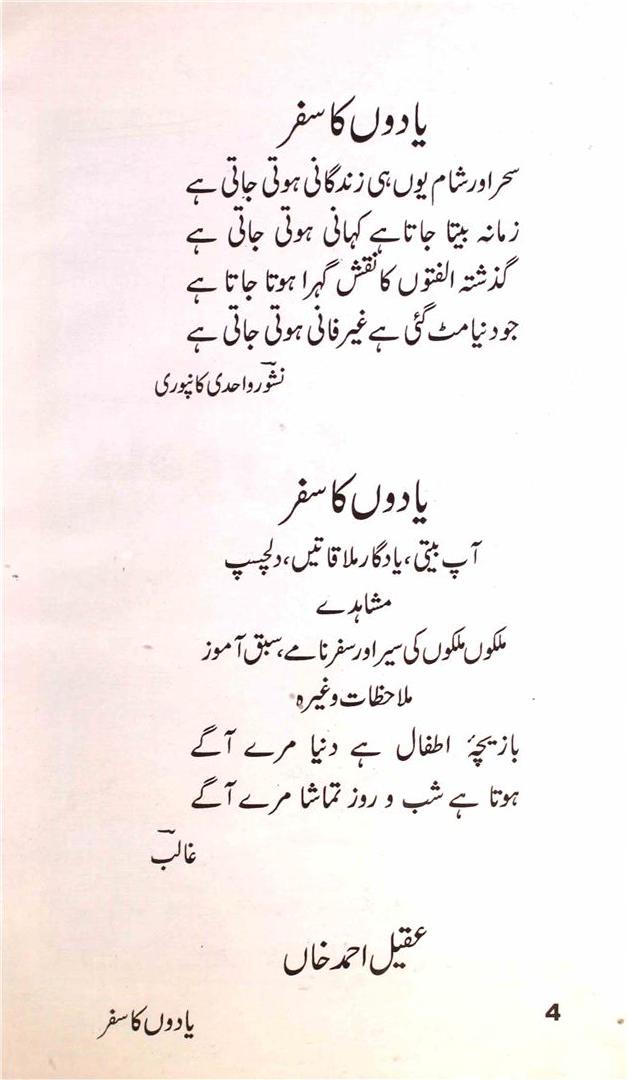 یادوں کا سفر
سحر اور شام یوں ہی زندگانی ہوتی جاتی ہے
زمانہ بیتا جاتا ہے کہانی ہوتی جاتی ہے
گذشتہ الفتوں کا نقش گہرا ہوتا جاتا ہے
جو دنیا مٹ گئی ہے غیر فانی ہوتی جاتی ہے
نشور واحدی کانپوری
یادوں کا سفر
آپ بیتی، یادگار ملاقاتیں، دلچسپ
مشاہدے
ملکوں ملکوں کی سیر اور سفر نامے، سبق آموز
ملاحظات وغیرہ
بازیچۂ اطفال ہے دنیا مرے آگے
ہوتا ہے شب و روز تماشا مرے آگے
غالب
عقیل احمد خاں
یادوں کا سفر
4